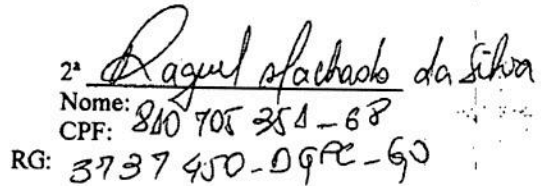 2ª Raquel Machado da Silva
Nome:
CPF: 810 705 351-68
RG: 3737450-DGPC-GO